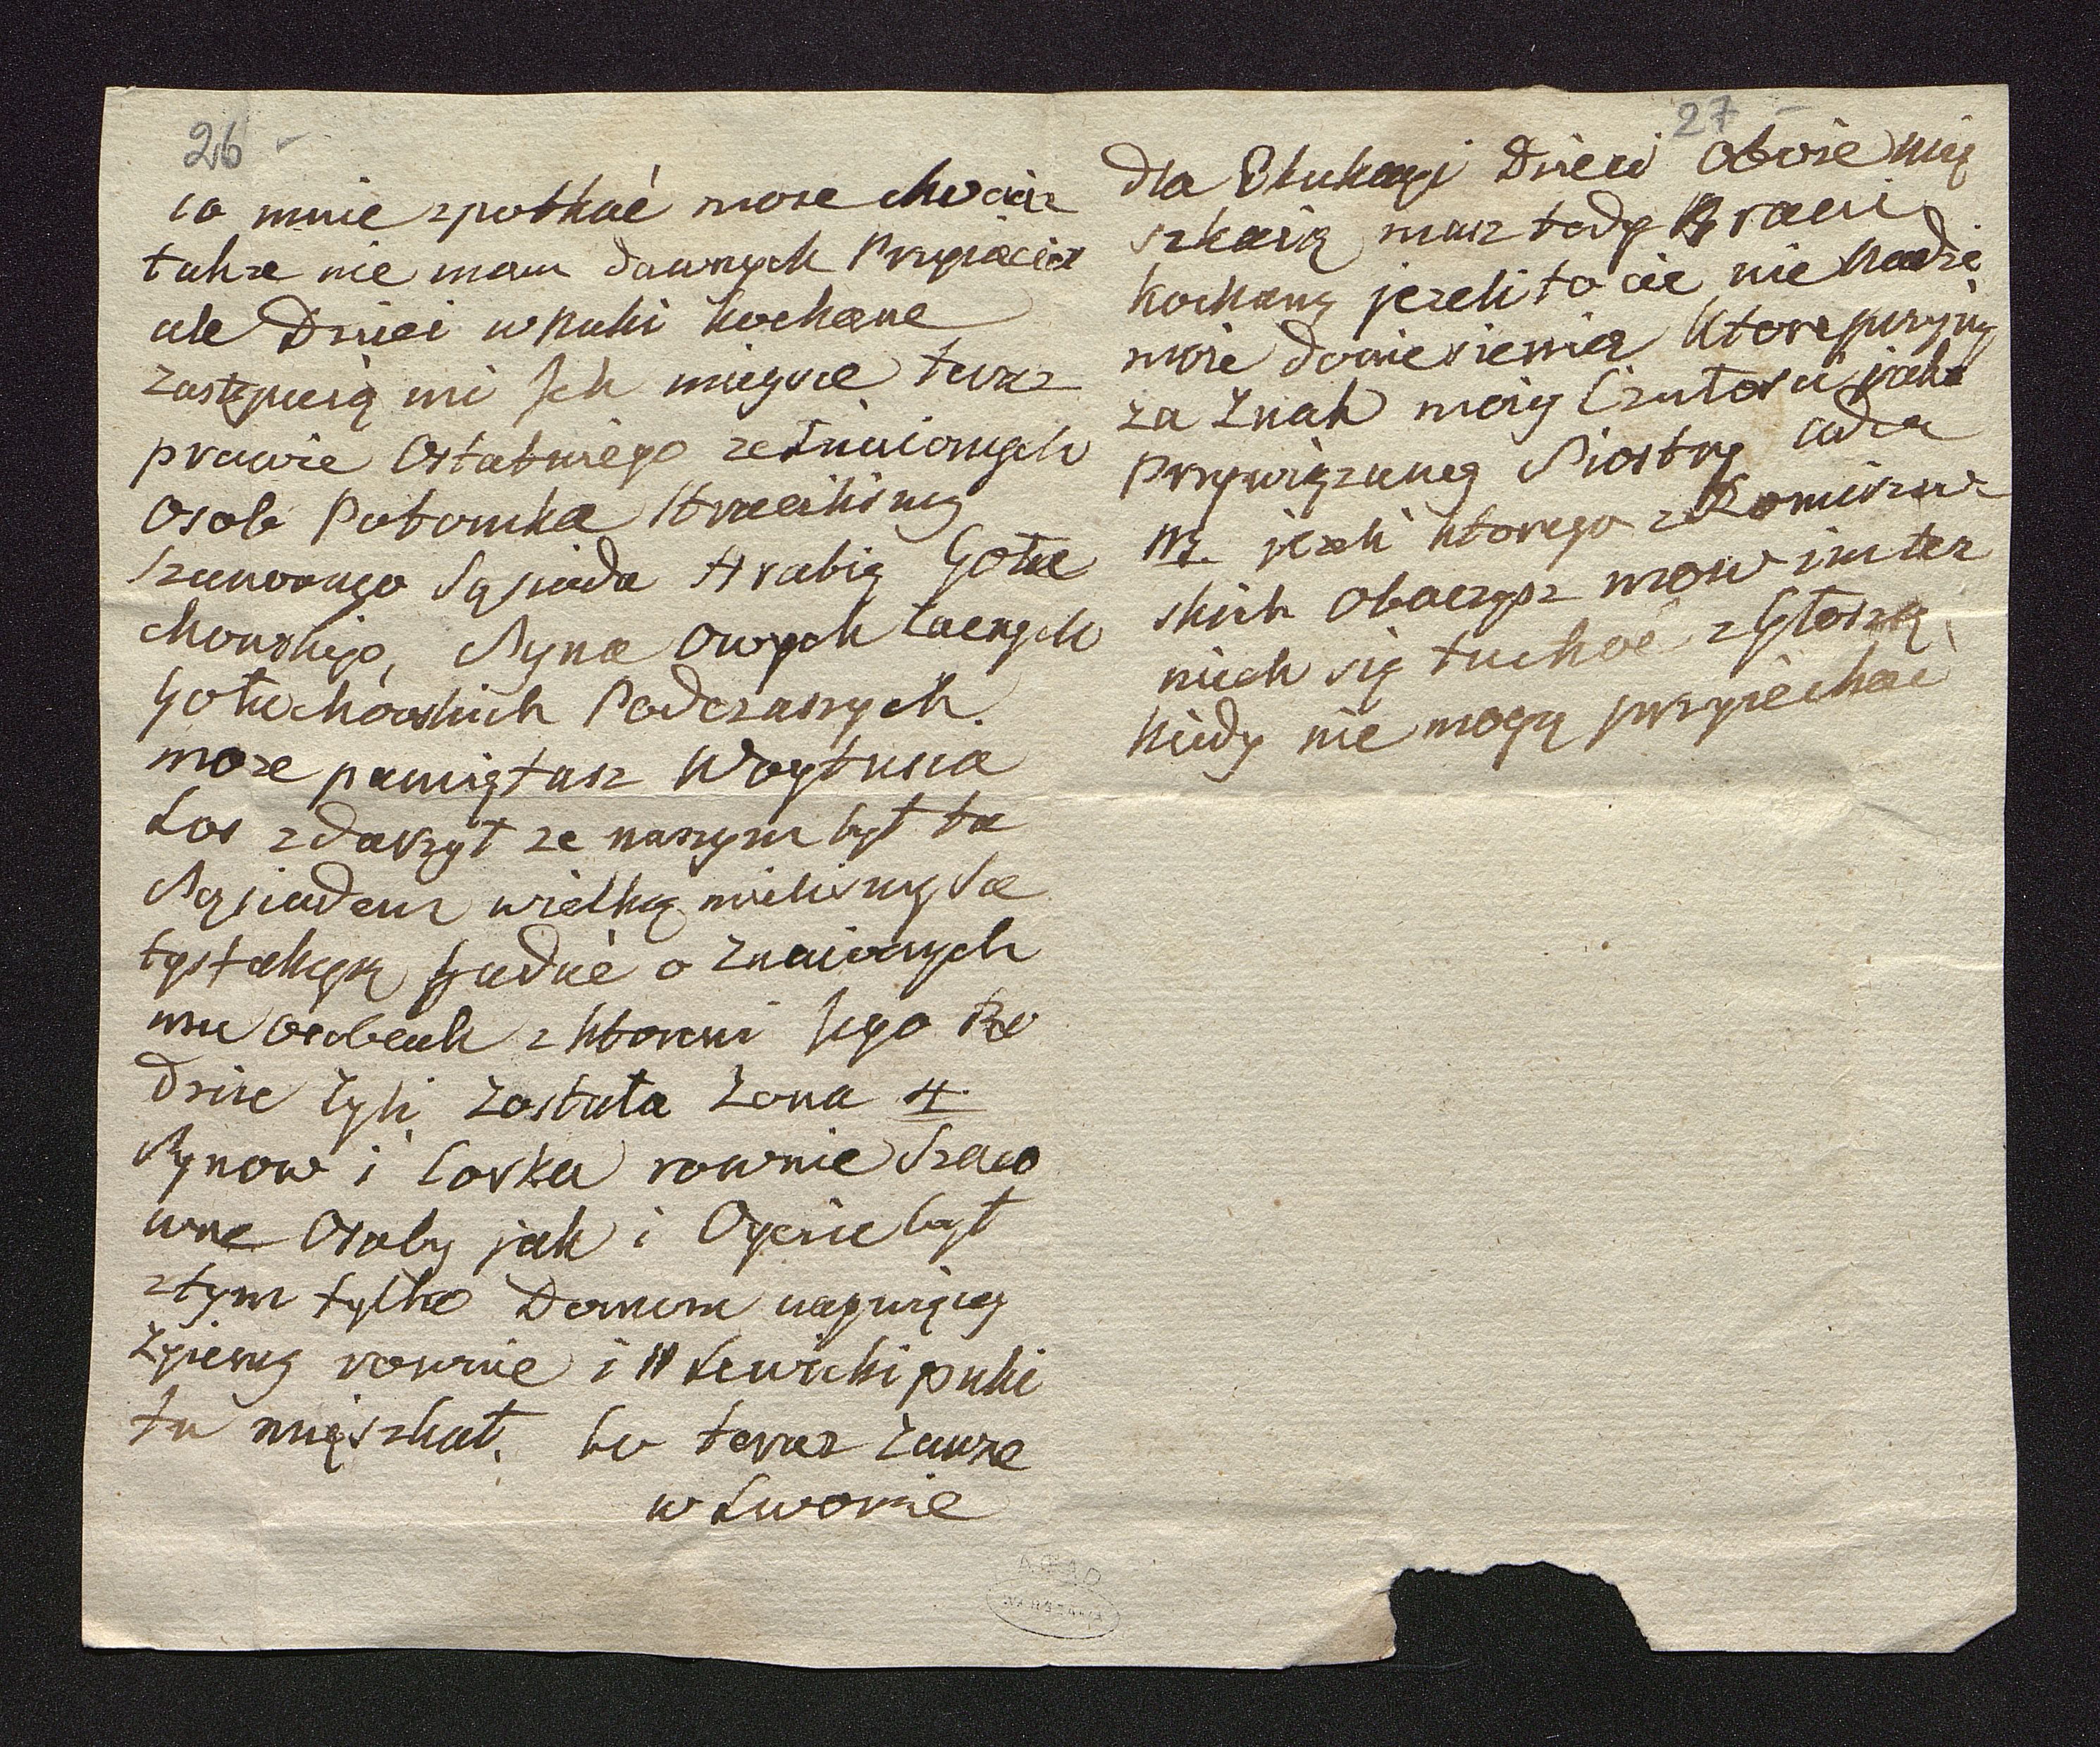 26
co mnie zpotkać może chociaz
także nie mam dawnych Przyiaciół
ale Dzieci wnuki kochane
zastępuią mi Ich mieysce teraz
prawie Ostatniego ze Znaiomych
Osob Potomka straciliśmy
Szanownego Sąsiada Hrabię Gołu
chowskiego, Syna Owych Zacnych
Gołuchowskich Podczaszych.
może pamiętasz Woytusia
Los zdarzył ze naszym był tu
Sąsiadem wielką mieliśmy Sa
tysfakcyą gadać o Znaiomych
mu osobach z ktoremi Jego Ro
dzice żyli, została Żona 4
Synow i Corka rownie Szaco
wne Osoby jak i Oyciec był
ztym tylko Domem naywięcy
Żyiemy rownie i Lewicki puki
tu mięszkał, bo teraz zawsze
w Lwowie
27
dla Edukacyi Dzieci Oboie mię
szkaią masz tedy Braci
kochany jezeli to cie nie nudzi
moie doniesienia ktore przyimy
za Znak moiy Czułości jako
Przywiązaney Siostry
NB jezeli ktorego z Romiszow
skich Obaczysz mow im tez
niech się tuchoć zgłoszą
kiedy nie mogą przyiechać